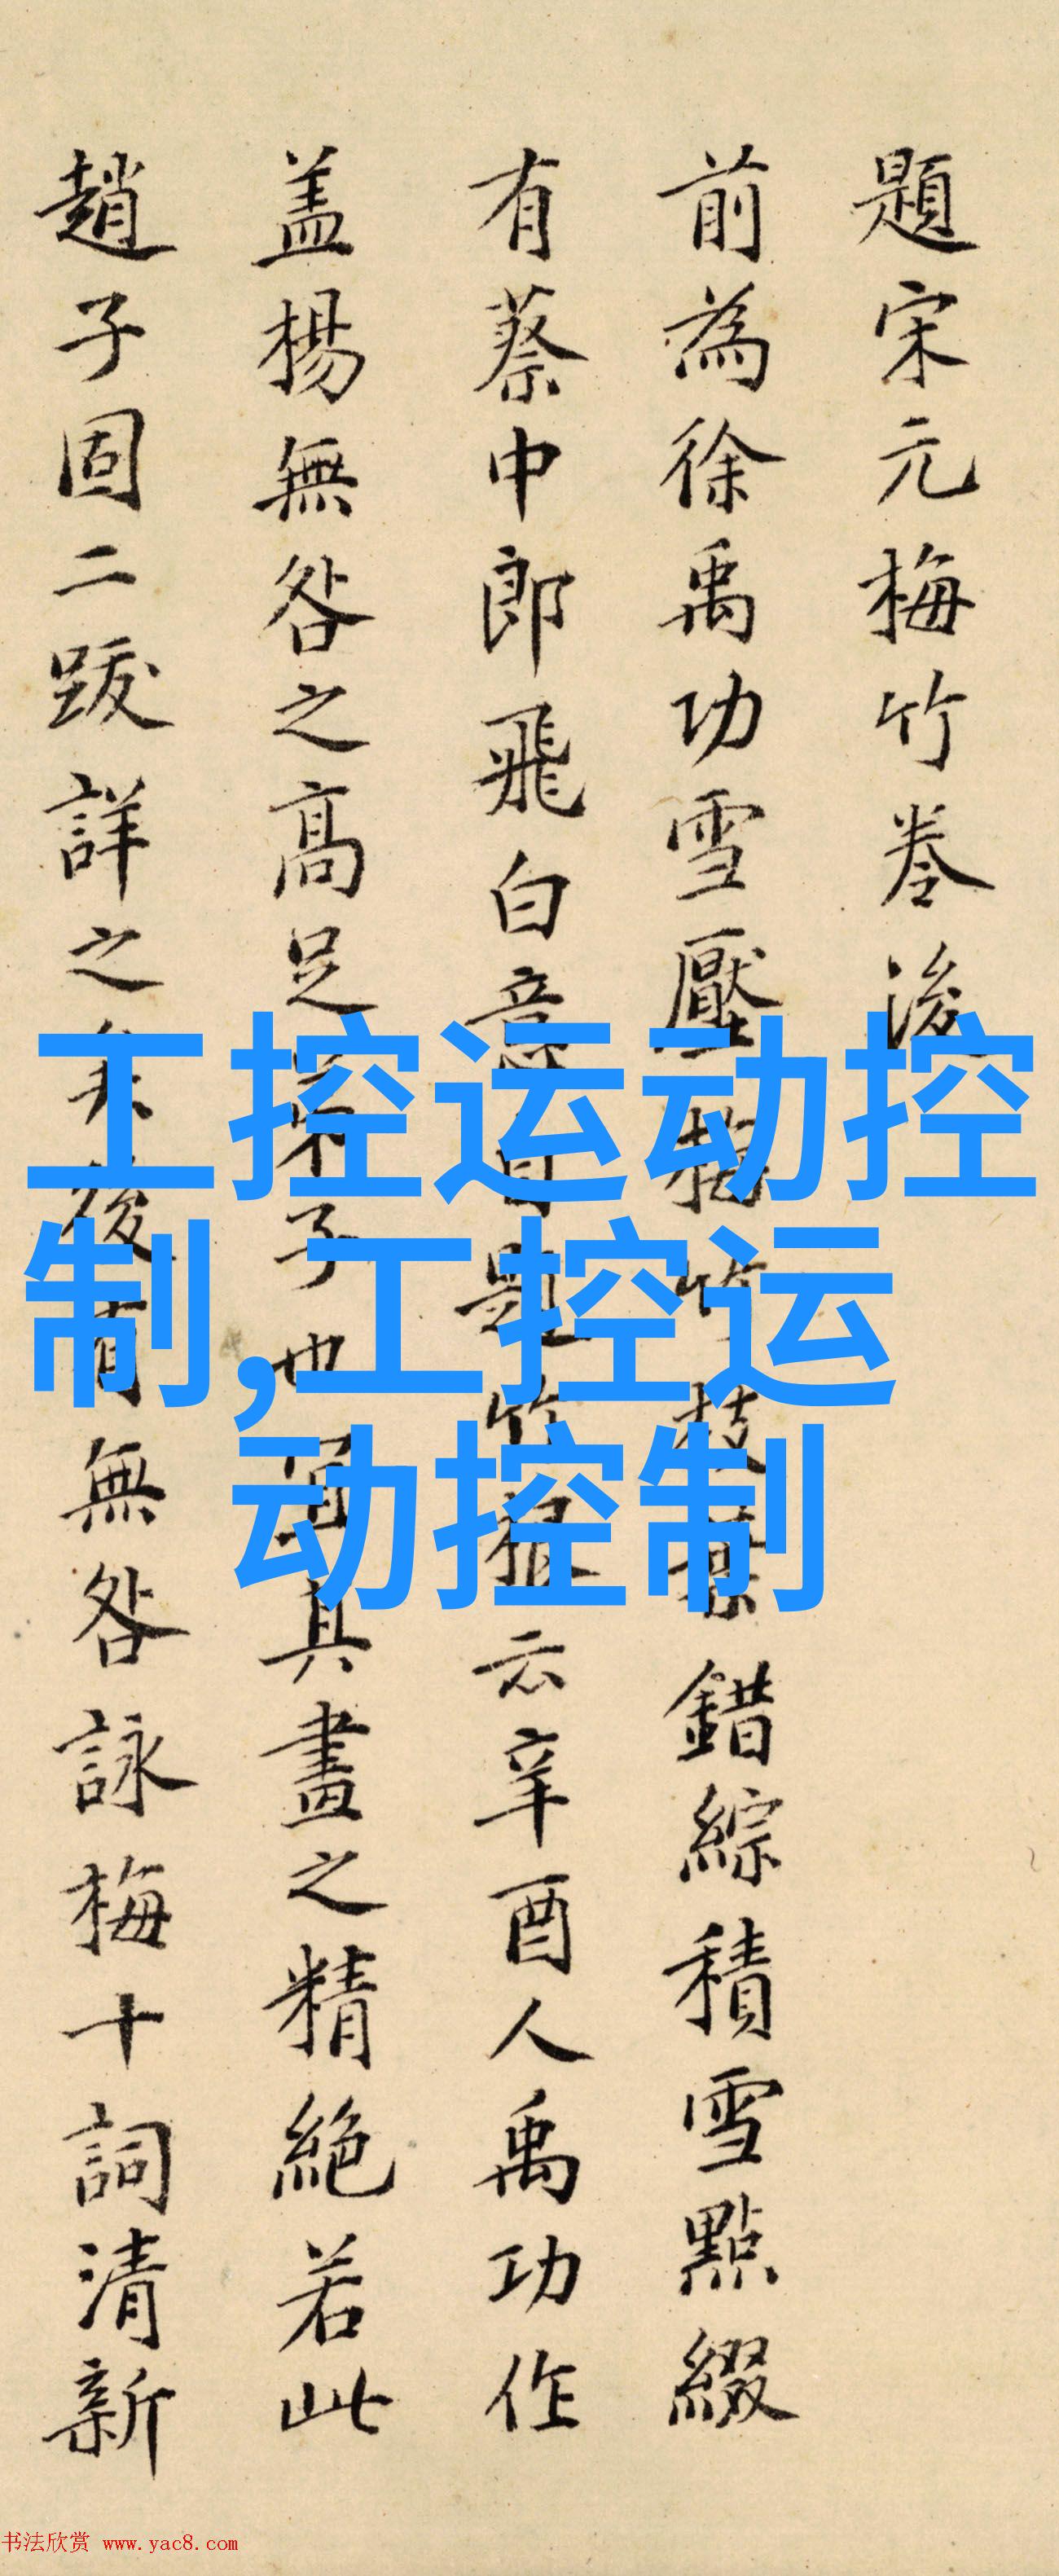 題宋元梅竹卷後
前為徐禹功雪壓梅竹枝葉錯綜積雪點綴
有蔡中郎飛白意自題竹根云辛酉人禹功作
盖楊無咎之高足弟子也宜其畫之精絕若此
趙子固二跋詳之矣後有無咎詠梅十詞清新
工控运动控
制,工控运
动控制
书法欣赏 www.yac8.com